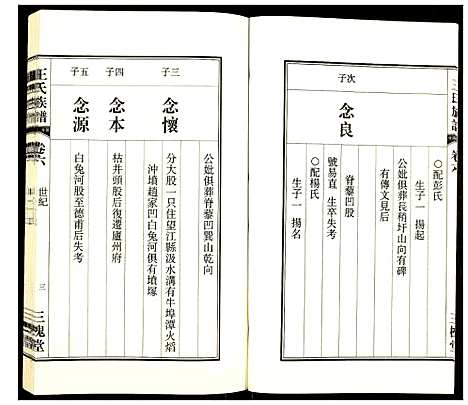 王氏族譜
卷六
三槐堂
○配彭氏
生子一　揚起
公妣俱葬長稍圩山向有碑
有傳文見后
次子
念良
脊藜凹股
號易直　生卒失考
○配楊氏
生子一　揚名
公妣俱葬脊藜凹巽山乾向
三子
念懷
分大股一只住望江縣汲水溝有牛埠潭火焰
沖墳趙家凹白兔河俱有墳塚
四子
念本
枯井頭股后復遷廬州府
五子
念源
白兔河股至德甫后失考
王氏族譜
卷六
世紀
三
三槐堂